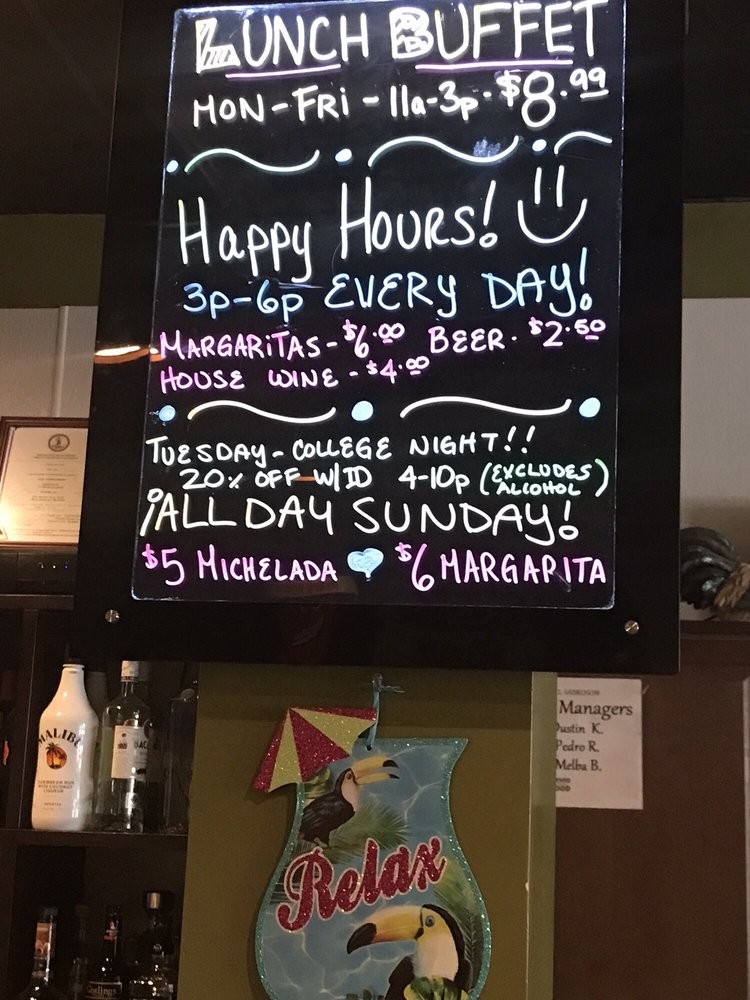 LUNCH BUFFET
MON-FRI-11a-3p.$8.99
Happy Hours!
3p-6p EVERY DAY!
MARGARITAS-$6.00 BEER.$2.50
HOUSE WINE-$4.00
TUESDAY-COLLEGE NIGHT!!
20% OFF W/ID 4-10p (EXCLUDES
ALCOHOL)
¡ALL DAY SUNDAY!
$5 MICHELADA $6 MARGARITA
MALIBU
CARIBBEAN RUM
WITH COCONUT
LIQUEUR
Relax
Managers
Dustin K.
Pedro R.
Melba B.
Goslings